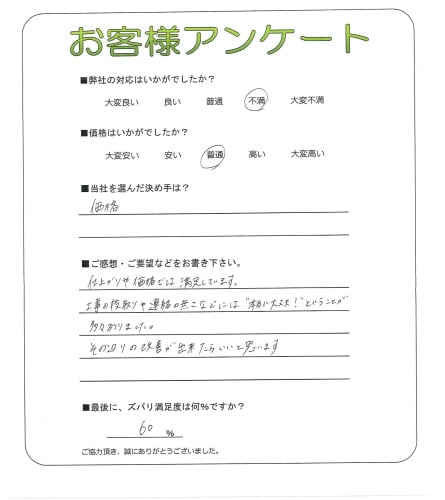 お客様アンケート
■弊社の対応はいかがでしたか？
大変良い 良い 普通 不満 大変不満
■価格はいかがでしたか？
大変安い 安い 普通 高い 大変高い
■当社を選んだ決め手は？
価格
■ご感想・ご要望などをお書き下さい。
仕上がりや価格では満足しています。
工事の段取りや連絡の無さなどには"本当に大丈夫？"ということが
多々ありました。
その辺りの改善が出来たらいいと思います
■最後に、ズバリ満足度は何%ですか？
60 %
ご協力頂き、誠にありがとうございました。